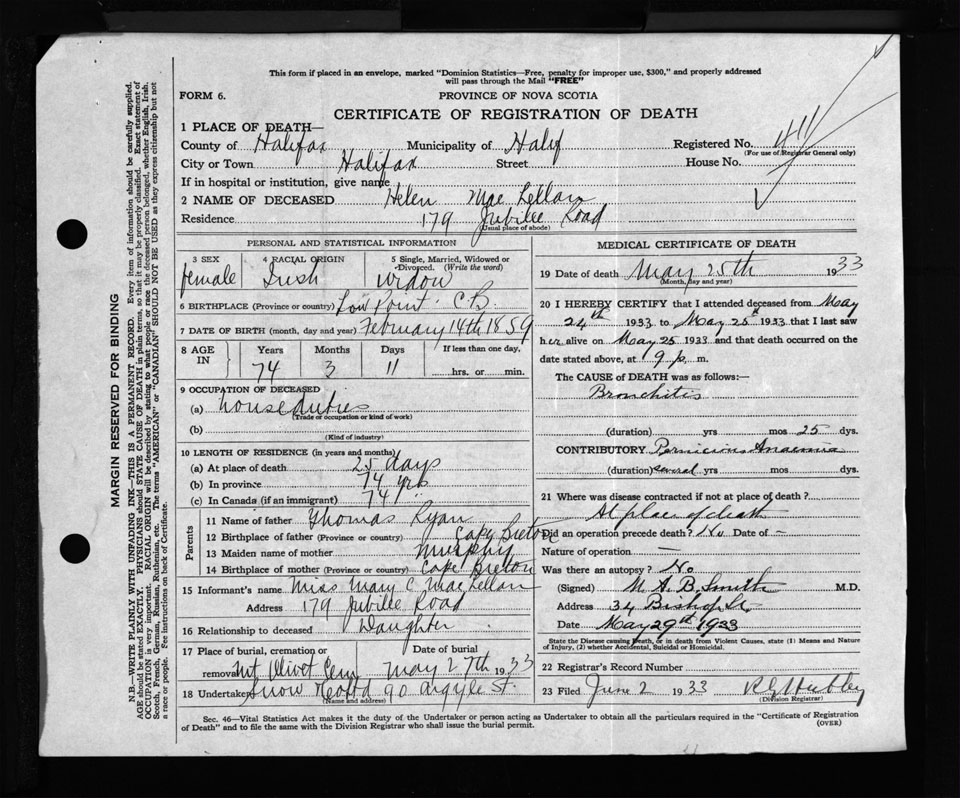 This form if placed in an envelope, marked "Dominion Statistics—Free, penalty for improper use, $300," and properly addressed
will pass through the Mail "FREE"
FORM 6.
PROVINCE OF NOVA SCOTIA
CERTIFICATE OF REGISTRATION OF DEATH
1 PLACE OF DEATH—
County of Halifax Municipality of Halif Registered No. 411
(For use of Registrar General only)
City or Town Halifax Street House No.
If in hospital or institution, give name
2 NAME OF DECEASED Helen MacLellan
Residence 179 Jubilee Road
(Usual place of abode)
PERSONAL AND STATISTICAL INFORMATION
3 SEX 4 RACIAL ORIGIN 5 Single, Married, Widowed or
Divorced. (Write the word)
female Irish widow
6 BIRTHPLACE (Province or country) Low Point C.B.
7 DATE OF BIRTH (month, day and year) February 14th 1859
8 AGE IN Years Months Days If less than one day,
74 3 11 hrs. or min.
9 OCCUPATION OF DECEASED
(a) house duties
(Trade or occupation or kind of work)
(b)
(Kind of industry)
10 LENGTH OF RESIDENCE (in years and months)
(a) At place of death 25 days
(b) In province 74 yrs
(c) In Canada (if an immigrant) 74 "
Parents
11 Name of father Thomas Ryan
12 Birthplace of father (Province or country) Cape Breton
13 Maiden name of mother Murphy
14 Birthplace of mother (Province or country) Cape Breton
15 Informant's name Miss Mary C MacLellan
Address 179 Jubilee Road
16 Relationship to deceased Daughter
17 Place of burial, cremation or Date of burial
removal Mt Olivet Cem May 27th 1933
18 Undertaker Snow 90 Argyle St.
(Name and address)
MEDICAL CERTIFICATE OF DEATH
19 Date of death May 25th 1933
(Month, day and year)
20 I HEREBY CERTIFY that I attended deceased from May
24th 1933 to May 25th 1933 that I last saw
her alive on May 25 1933 and that death occurred on the
date stated above, at 9 p. m.
The CAUSE OF DEATH was as follows:—
Bronchitis
(duration) yrs mos 25 dys.
CONTRIBUTORY Pernicious Anaemia
(duration) several yrs mos dys.
21 Where was disease contracted if not at place of death?
At place of death
Did an operation precede death? No Date of —
Nature of operation —
Was there an autopsy? No
(Signed) M. A. B. Smith M.D.
Address 34 Bishop St.
Date May 29th 1933
State the Disease causing Death, or in death from Violent Causes, state (1) Means and Nature
of Injury, (2) whether Accidental, Suicidal or Homicidal.
22 Registrar's Record Number
23 Filed June 2 1933
(Division Registrar)
Sec. 46—Vital Statistics Act makes it the duty of the Undertaker or person acting as Undertaker to obtain all the particulars required in the "Certificate of Registration
of Death" and to file the same with the Division Registrar who shall issue the burial permit.
(OVER)
MARGIN RESERVED FOR BINDING
N.B.—WRITE PLAINLY WITH UNFADING INK—THIS IS A PERMANENT RECORD. Every item of information should be carefully supplied.
AGE should be stated EXACTLY. PHYSICIANS should STATE CAUSE OF DEATH in plain terms, so that it may be properly classified. Exact statement of
OCCUPATION is very important. RACIAL ORIGIN will be described by stating to what people or race the deceased person belonged, whether English, Irish,
Scotch, French, German, Russian, Ruthenian, etc. The terms "AMERICAN" or "CANADIAN" SHOULD NOT BE USED as they express citizenship but not
a race or people. See instructions on back of Certificate.